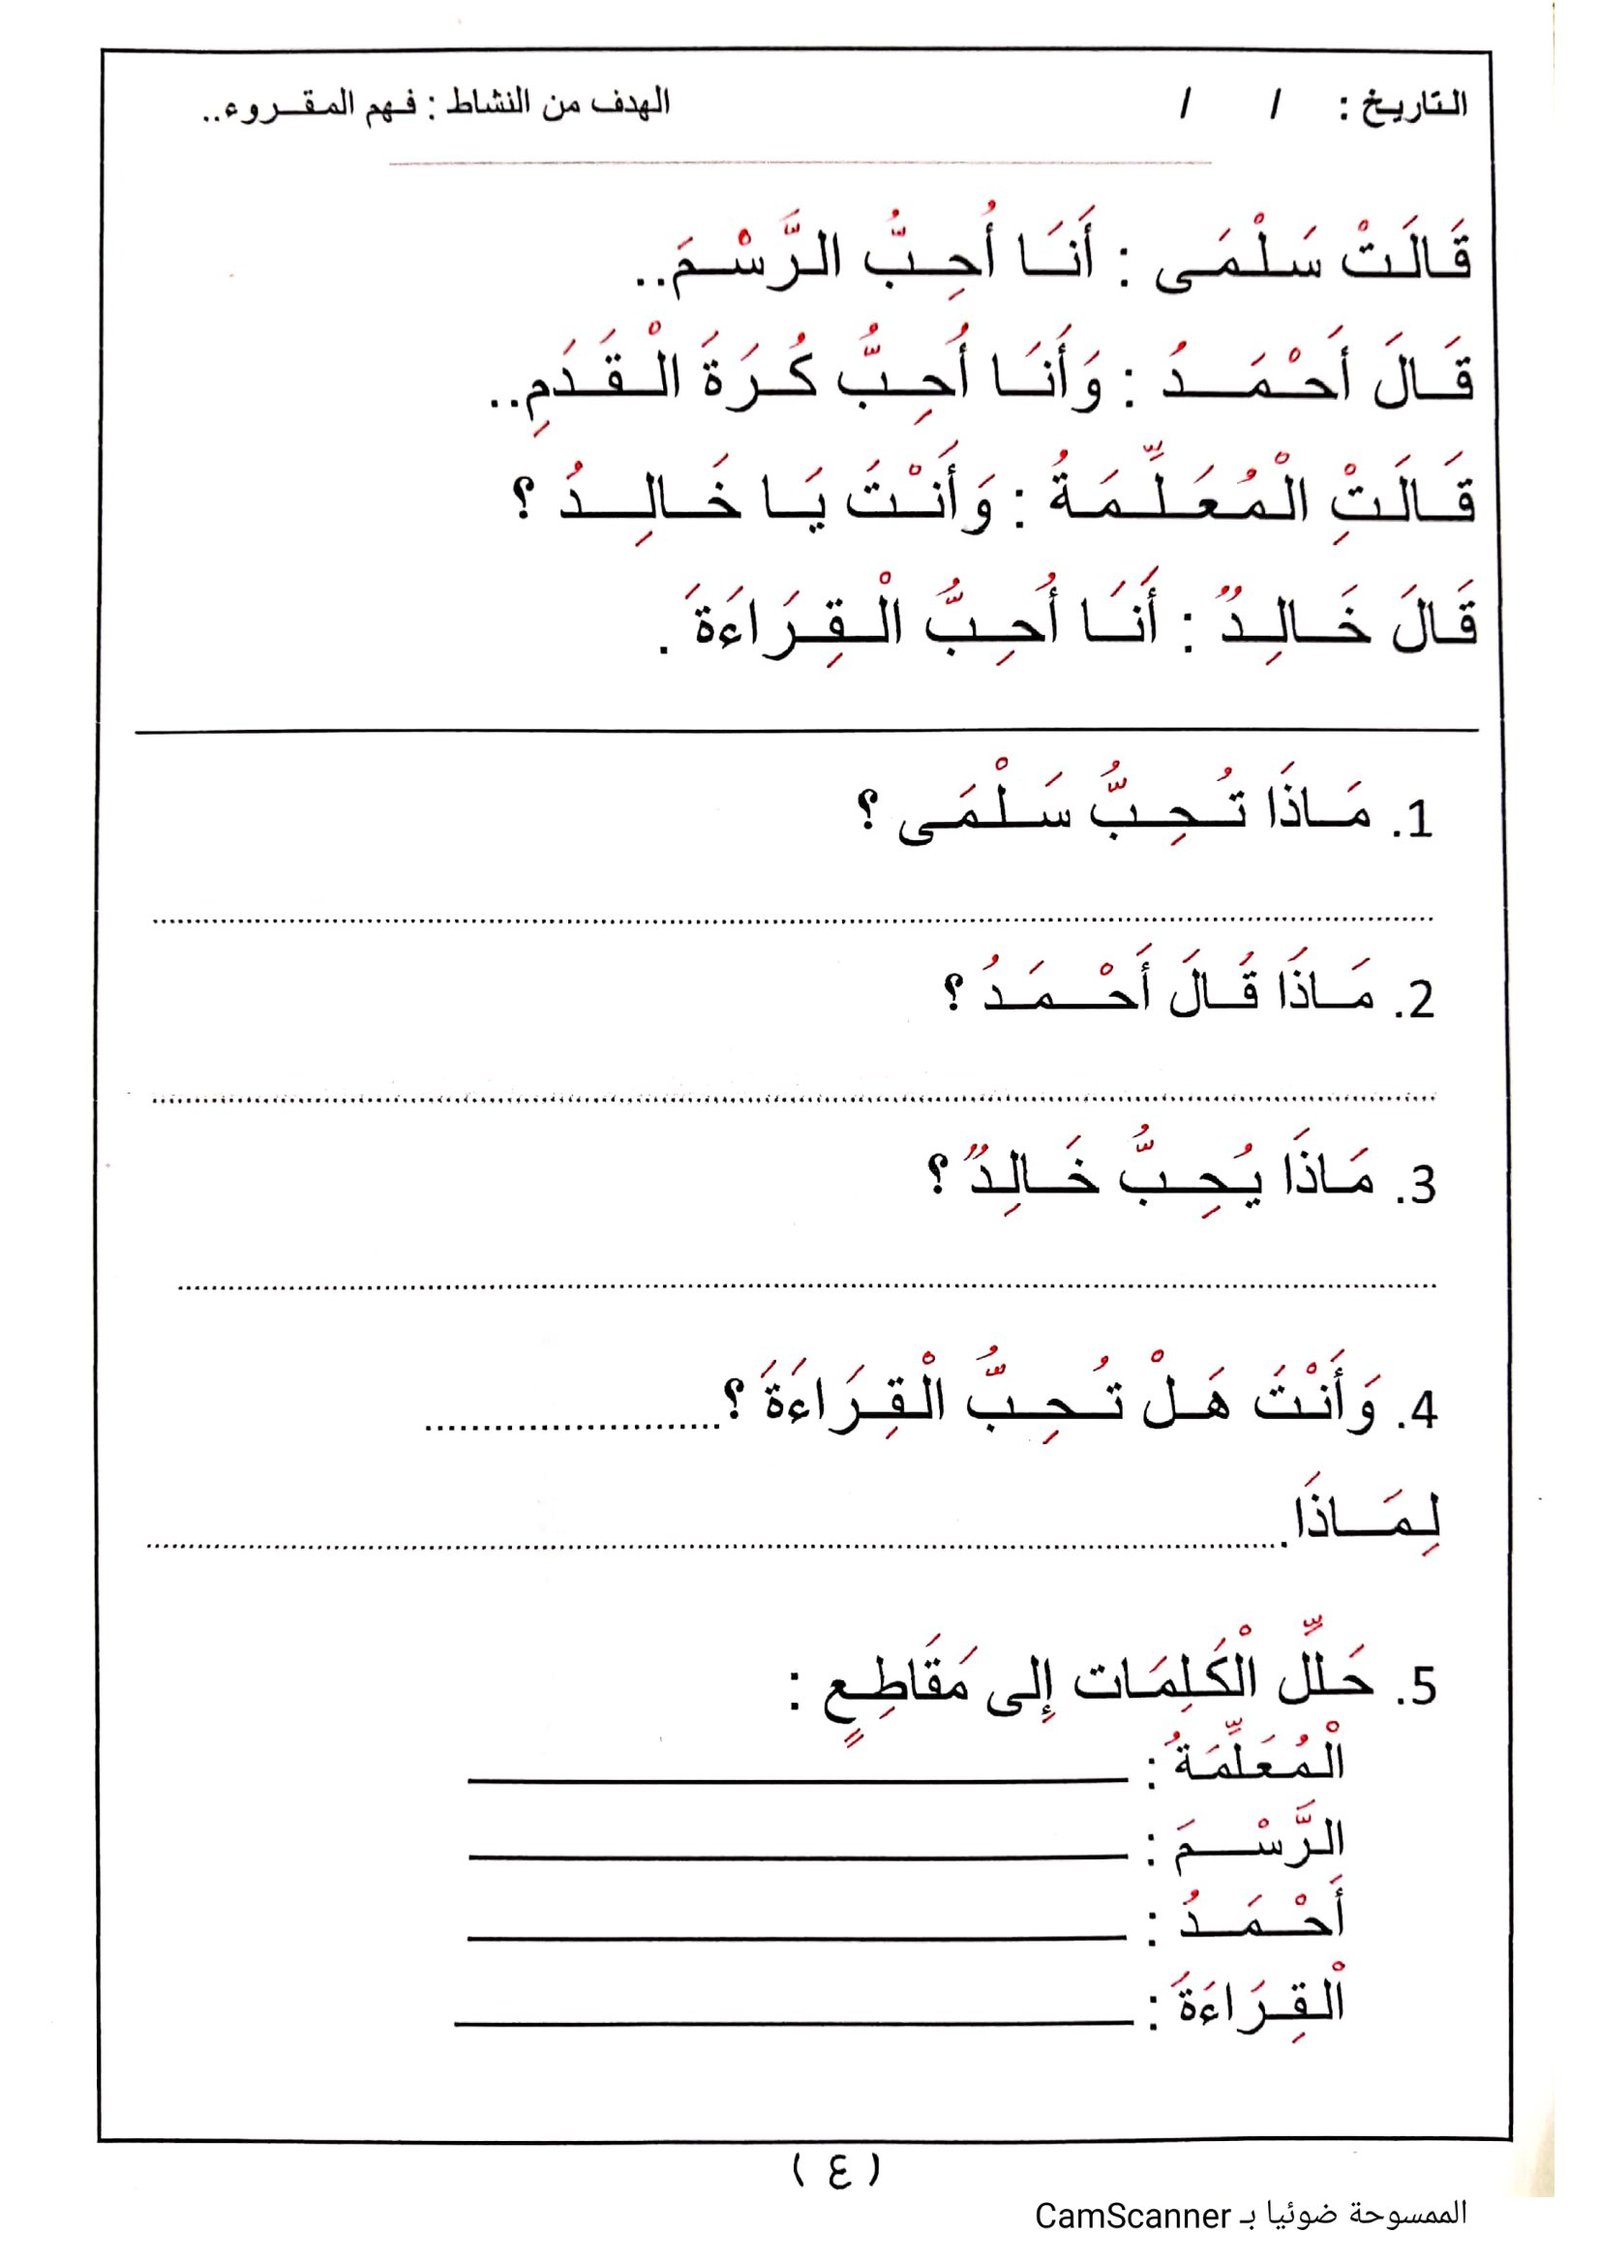 التاريخ : / / الهدف من النشاط : فهم المقروء..
قَالَتْ سَلْمَى : أَنَا أُحِبُّ الرَّسْمَ..
قَالَ أَحْمَدُ : وَأَنَا أُحِبُّ كُرَةَ الْقَدَمِ..
قَالَتْ الْمُعَلِّمَةُ : وَأَنْتَ يَا خَالِدُ ؟
قَالَ خَالِدٌ : أَنَا أُحِبُّ الْقِرَاءَةَ .
1. مَاذَا تُحِبُّ سَلْمَى ؟
2. مَاذَا قَالَ أَحْمَدُ ؟
3. مَاذَا يُحِبُّ خَالِدٌ ؟
4. وَأَنْتَ هَلْ تُحِبُّ الْقِرَاءَةَ ؟
لِمَاذَا
5. حَلِّل الْكَلِمَات إِلى مَقَاطِعٍ :
الْمُعَلِّمَةُ :
الرَّسْمَ :
أَحْمَدُ :
الْقِرَاءَةَ :
( ٤ )
الممسوحة ضوئيا بـ CamScanner